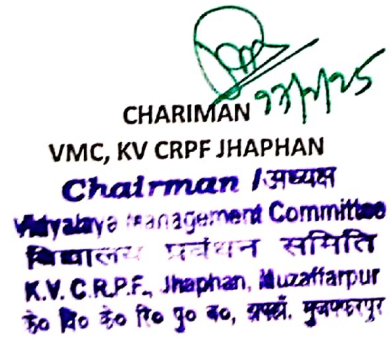 CHARIMAN
VMC, KV CRPF JHAPHAN
Chairman /अध्यक्ष
Vidyalaya Management Committee
विद्यालय प्रबंधन समिति
K.V. C.R.P.F., Jhaphan, Muzaffarpur
के० वि० के० रि० पु० ब०, झपहाँ, मुजफ्फरपुर